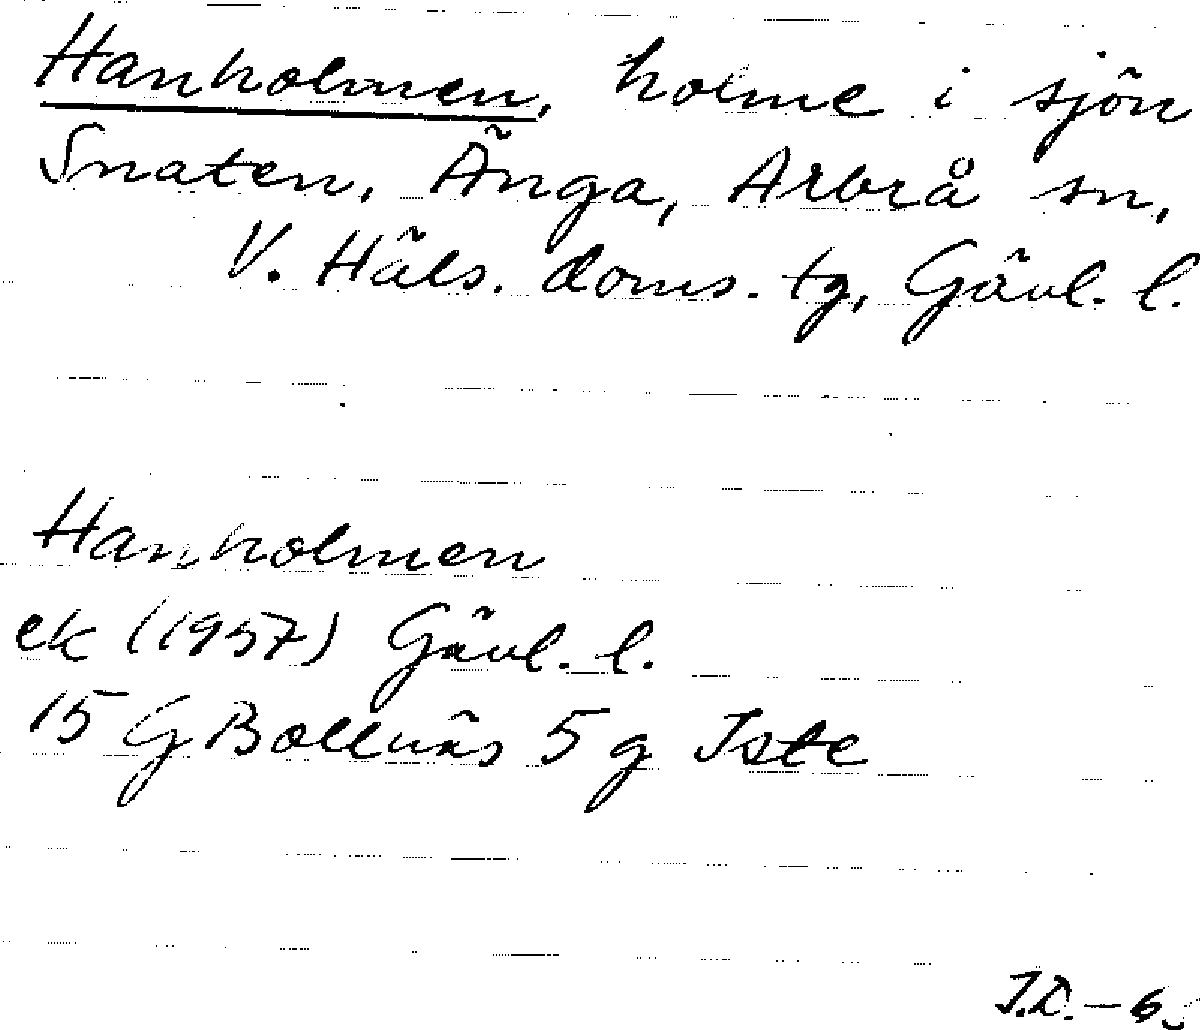 Hanholmen, holme i sjön
Snaten, Änga, Arbrå sn,
V. Häls. doms. tg, Gävl. l.
Hanholmen
ek (1957) Gävl. l.
15 G Bollnäs 5 g Iste
J.D. – 6